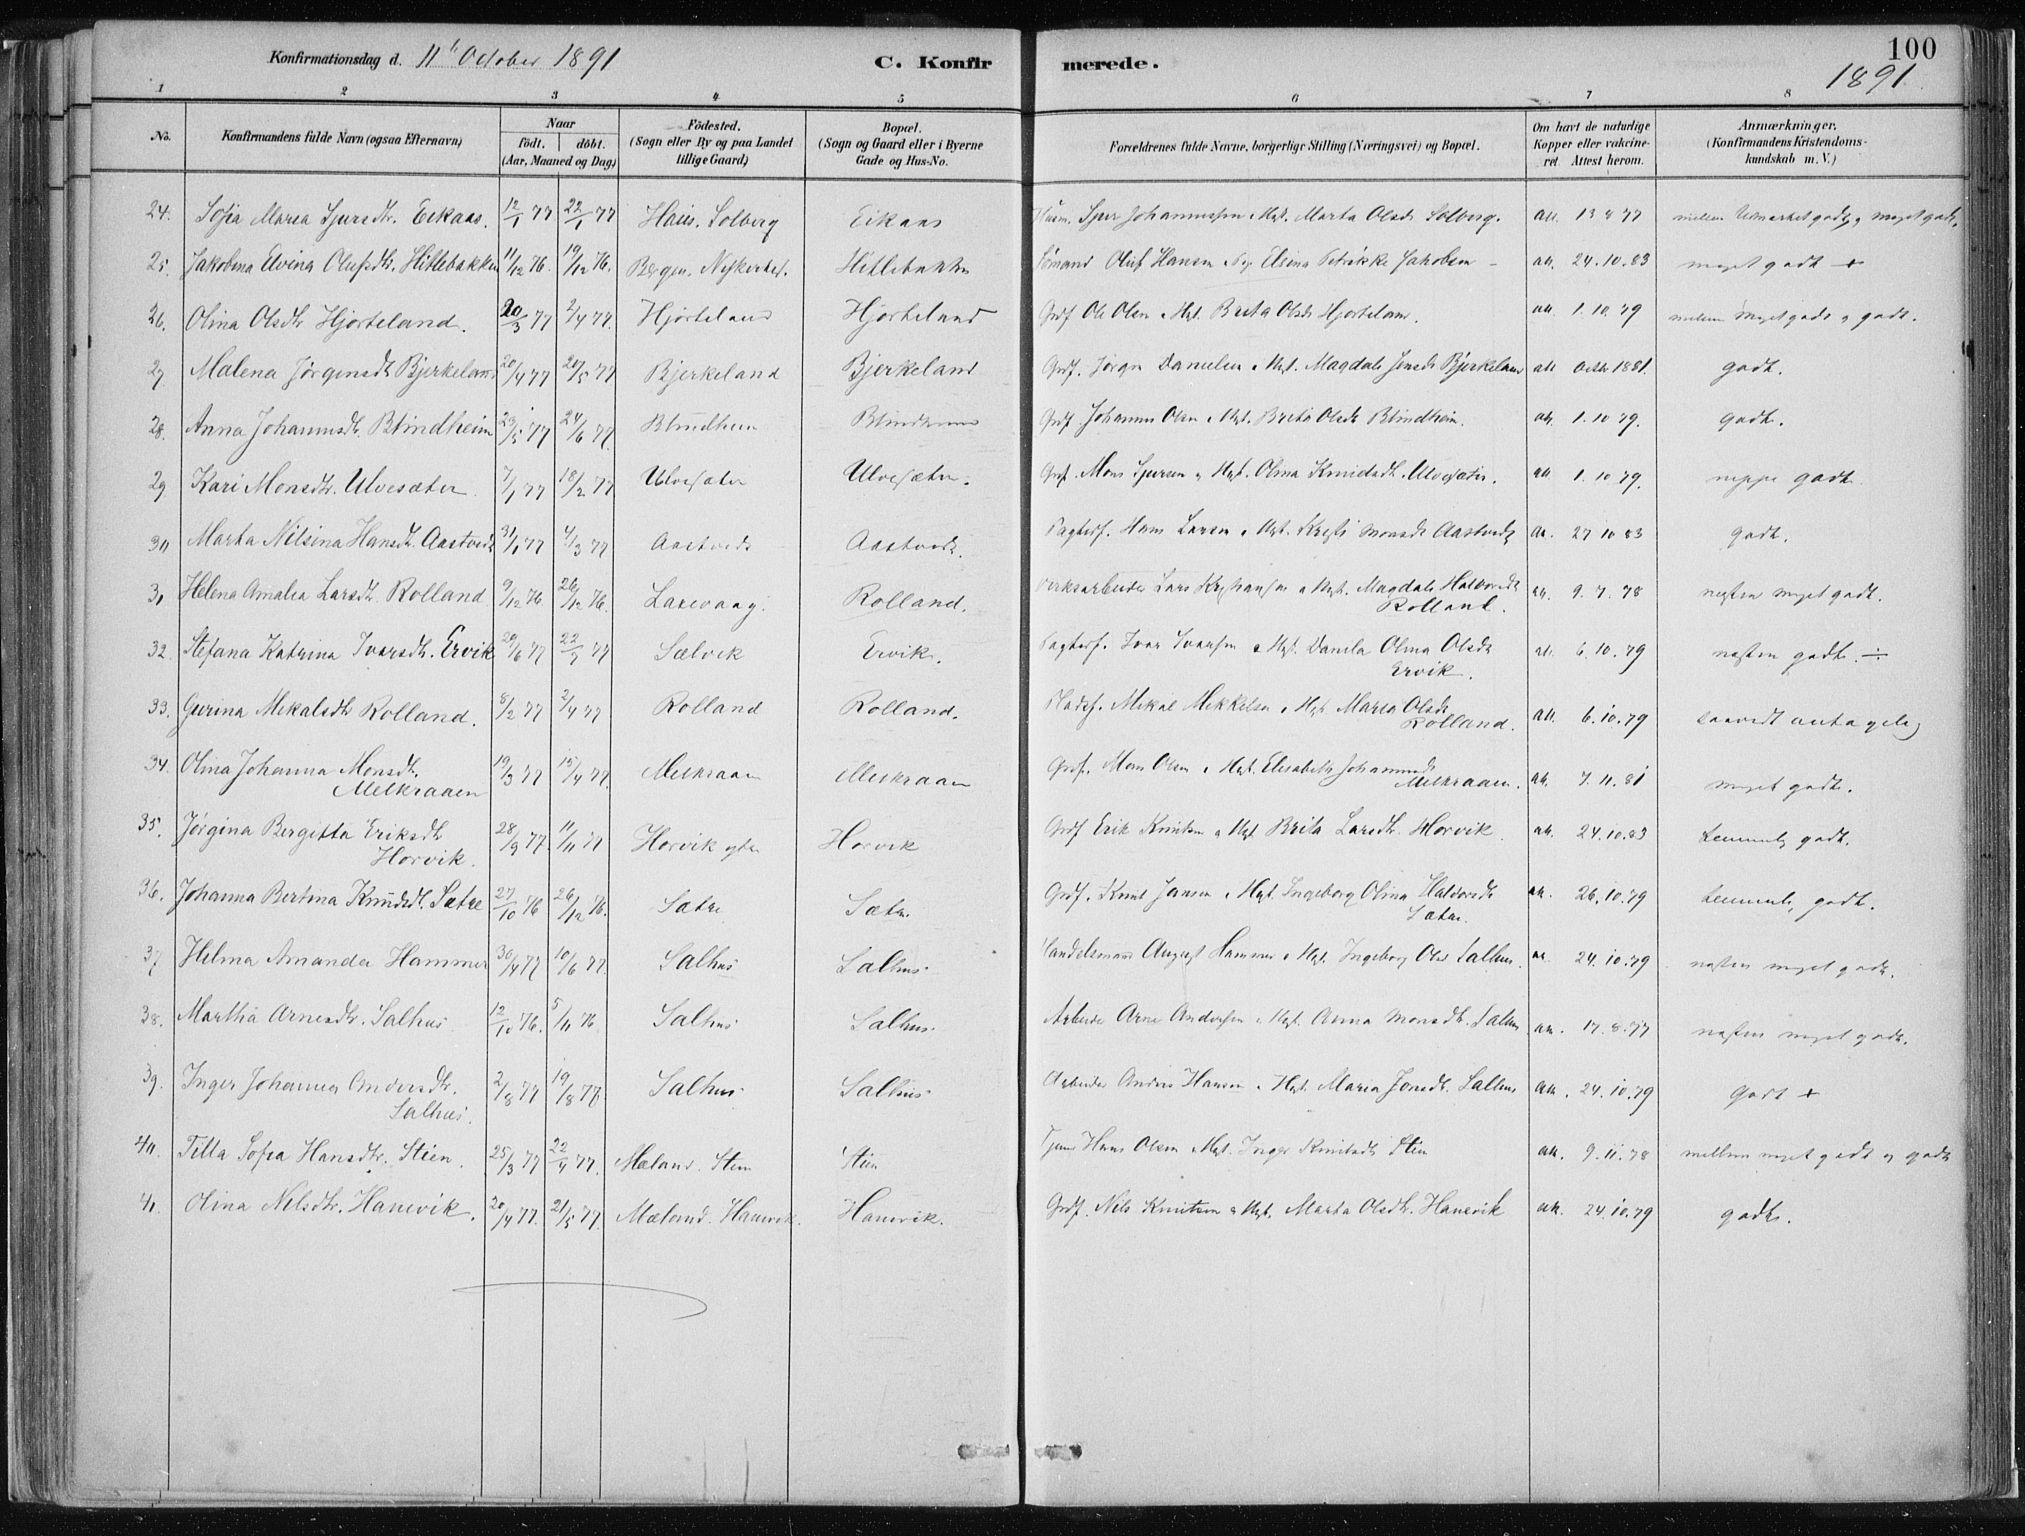 Konfirmationsdag d. 11te October 1891
C. Konfirmerede.
100
1891
1 2 3 4 5 6 7 8
No.
Konfirmandens fulde Navn (ogsaa Efternavn)
Naar
födt. döbt.
(Aar, Maaned og Dag)
Födested.
(Sogn eller By og paa Landet
tillige Gaard)
Bopæl.
(Sogn og Gaard eller i Byerne
Gade og Hus-No.
Forældrenes fulde Navne, borgerlige Stilling (Næringsvei) og Bopæl.
Om havt de naturlige
Kopper eller vakcine-
ret Attest herom.
Anmærkninger.
(Konfirmandens Kristendoms-
kundskab m. V.)
24. Sofia Maria Sjursdtr. Eikaas. 12/1 77 22/1 77 Haus. Solberg Eikaas Husm. Sjur Johannessen & Hst. Marta Olsdr Solberg. att. 13 8 77 mellem Udmærket godt og meget godt.
25. Jakobina Elvina Olufsdtr. Hitlebakken 11/12 76. 19/12 76. Bergen. Nykirken. Hitlebakken Sömand Oluf Hansen Elvina Petrikke Jakobsen – att. 24.10.83 meget godt +
26. Olina Olsdtr Hjorteland. 20/3 77 2/4 77. Hjorteland Hjorteland Grdf Ole Olsen & Hst. Brita Olsdr Hjorteland. att. 1.10.79 mellem meget godt og godt.
27 Malena Jørgensdtr Bjerkeland 20/4 77 21/5 77 Bjerkeland Bjerkeland Grdf. Jörgen Danielsen & Hst. Magdale Jensdr Bjerkeland att Octbr 1881. godt.
28. Anna Johannesdtr. Blindheim 23/5 77 24/6 77. Blindheim Blindheim Grdf Johannes Olsen & Hst. Brita Olsdr Blindheim. att. 1.10 79. godt.
29 Kari Monsdtr. Ulvesæter 7/1 77 18/2 77 Ulvesæter Ulvesæter. Grdf. Mons Sjursen & Hst. Olina Knudsdtr. Ulvesæter. att 1.10 79. neppe godt.
30 Marta Nilsina Hansdtr. Aastvedt 31/1 77 4/3 77 Aastvedt Aastvedt. Pagterf. Hans Larsen & Hst. Kristi Monsdr Aastvedt att. 27 10 83 godt.
31 Helena Amalia Larsdtr. Rolland 9/12 76. 26/12 76. Laxevaag. Rolland. Verksarbeider Lars Kristiansen & Hst. Magdale Halvorsdr
Rolland. att. 9.7.78 næsten meget godt.
32. Stefana Katrina Ivarsdtr. Ervik 20/6 77 22/7 77 Sælvik Ervik. Pagterf. Ivar Ivarsen & Hst. Danila Olina Olsdr
Ervik. att. 6.10.79 næsten godt. ÷
33. Gurina Mikalsdtr Rolland. 8/2 77 2/4 77 Rolland Rolland. Pladsf. Mikal Mikkelsen & Hst Maria Olsdr
Rolland. att 6.10.79 saavidt antagelig
34. Olina Johanna Monsdtr.
Melkraaen 19/3 77 15/4 77. Melkraaen Melkraaen Grdf. Mons Olsen & Hst. Elisabeth Johannesdr
Melkraaen. att. 7.11.81 meget godt.
35. Jørgina Bergitta Eriksdtr
Horvik. 28/9 77. 11/11 77 Horvik ytre Horvik Grdf Erik Knutsen & Hst Brita Larsdtr. Horvik. att. 24.10.83 temmelig godt.
36. Johanna Bertina Knudsdtr. Sætre 27/10 76 26/12 76. Sætre Sætre Grdf. Knut Jansen & Hst. Ingeborg Olina Haldorsdr
Sætre. att. 26.10.79 temmelig godt.
37 Helma Amanda Hammer 30/4 77 10/6 77. Salhus Salhus. Handelsmand August Hammer & Hst. Ingeborg Olsdr Salhus. att. 24.10.79 næsten meget godt.
38. Martha Arnesdtr. Salhus 12/10 76. 5/11 76. Salhus Salhus. Arbeider Arne Andersen & Hst. Anna Monsdtr. Salhus att. 17.8.77 næsten meget godt.
39. Inger Johanna Andersdtr.
Salhus. 2/8 77 19/8 77. Salhus Salhus Arbeider Anders Hansen & Hst. Maria Jonsdtr. Salhus att. 24.10.79 godt +
40. Tilla Sofia Hansdtr. Stien. 25/3 77 22/4 77. Mæland. Stien Stien Hans Olsen & Hst. Inger Knutsdtr Stien att. 9.11.78 mellem meget godt og godt
41. Olina Nelsdtr. Hanevik. 20/4 77. 21/5 77. Mæland. Hanevik. Hanevik. Grdf. Nils Knutsen & Hst. Marta Olsdtr. Hanevik att. 24.10.79 godt.